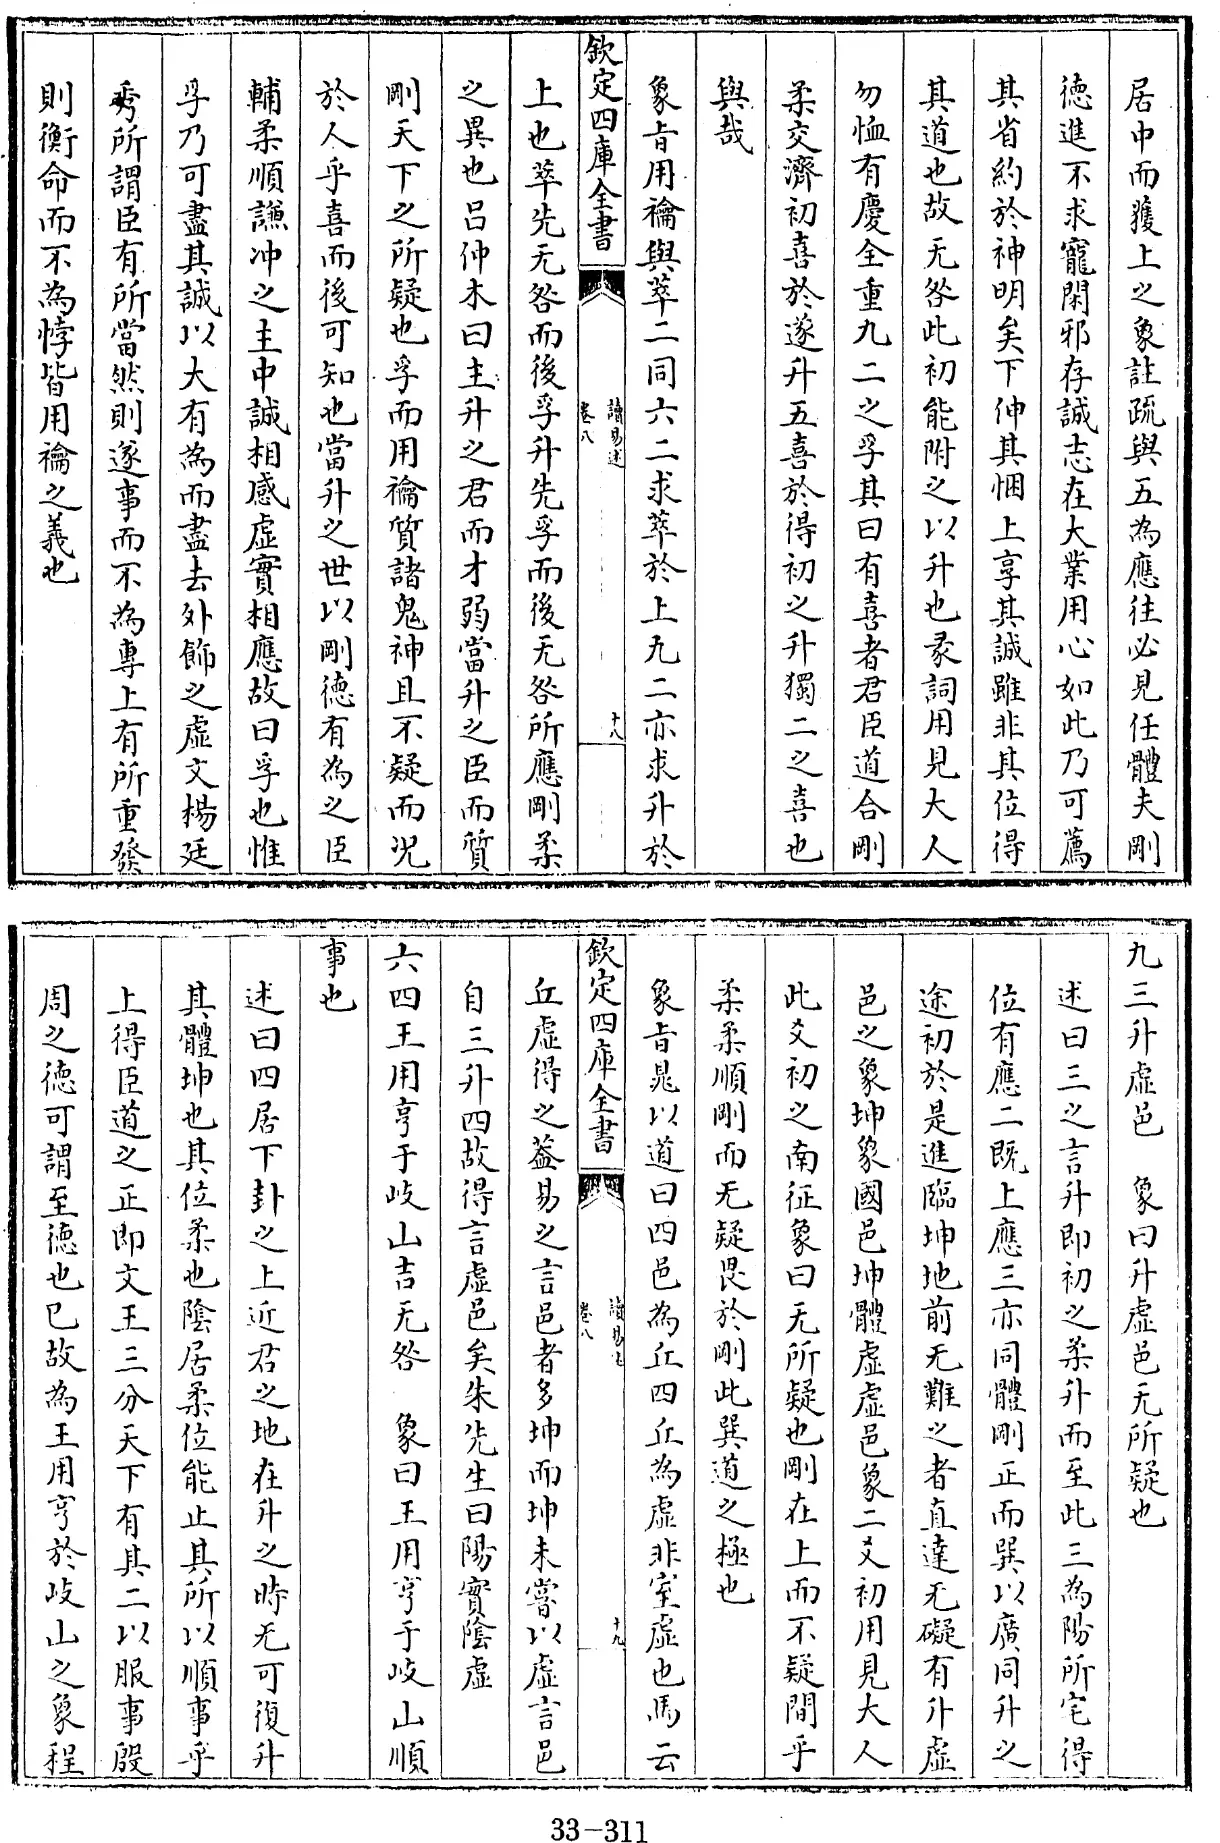 居中而獲上之象註疏與五為應往必見任體夫剛
徳進不求寵閑邪存誠志在大業用心如此乃可薦
其省約於神明矣下伸其悃上享其誠雖非其位得
其道也故无咎此初能附之以升也彖詞用見大人
勿恤有慶全重九二之孚其曰有喜者君臣道合剛
柔交濟初喜於遂升五喜於得初之升獨二之喜也
與哉
象旨用禴與萃二同六二求萃於上九二亦求升於
欽定四庫全書
讀易述
卷八
十八
上也萃先无咎而後孚升先孚而後无咎所應剛柔
之異也吕仲木曰主升之君而才弱當升之臣而質
剛天下之所疑也孚而用禴質諸鬼神且不疑而况
於人乎喜而後可知也當升之世以剛徳有為之臣
輔柔順謙冲之主中誠相感虛實相應故曰孚也惟
孚乃可盡其誠以大有為而盡去外飾之虛文楊廷
秀所謂臣有所當然則遂事而不為專上有所重發
則衡命而不為悖皆用禴之義也
九三升虛邑　象曰升虛邑无所疑也
述曰三之言升即初之柔升而至此三為陽所宅得
位有應二既上應三亦同體剛正而巽以廣同升之
途初於是進臨坤地前无難之者直達无礙有升虛
邑之象坤象國邑坤體虛虛邑象二爻初用見大人
此爻初之南征象曰无所疑也剛在上而不疑間乎
柔柔順剛而无疑畏於剛此巽道之極也
象旨晁以道曰四邑為丘四丘為虛非室虛也馬云
欽定四庫全書
讀易述
卷八
十九
丘虛得之葢易之言邑者多坤而坤未嘗以虛言邑
自三升四故得言虛邑矣朱先生曰陽實陰虛
六四王用亨于岐山吉无咎　象曰王用亨于岐山順
事也
述曰四居下卦之上近君之地在升之時无可復升
其體坤也其位柔也陰居柔位能止其所以順事乎
上得臣道之正即文王三分天下有其二以服事殷
周之徳可謂至徳也已故為王用亨於岐山之象程
33-311